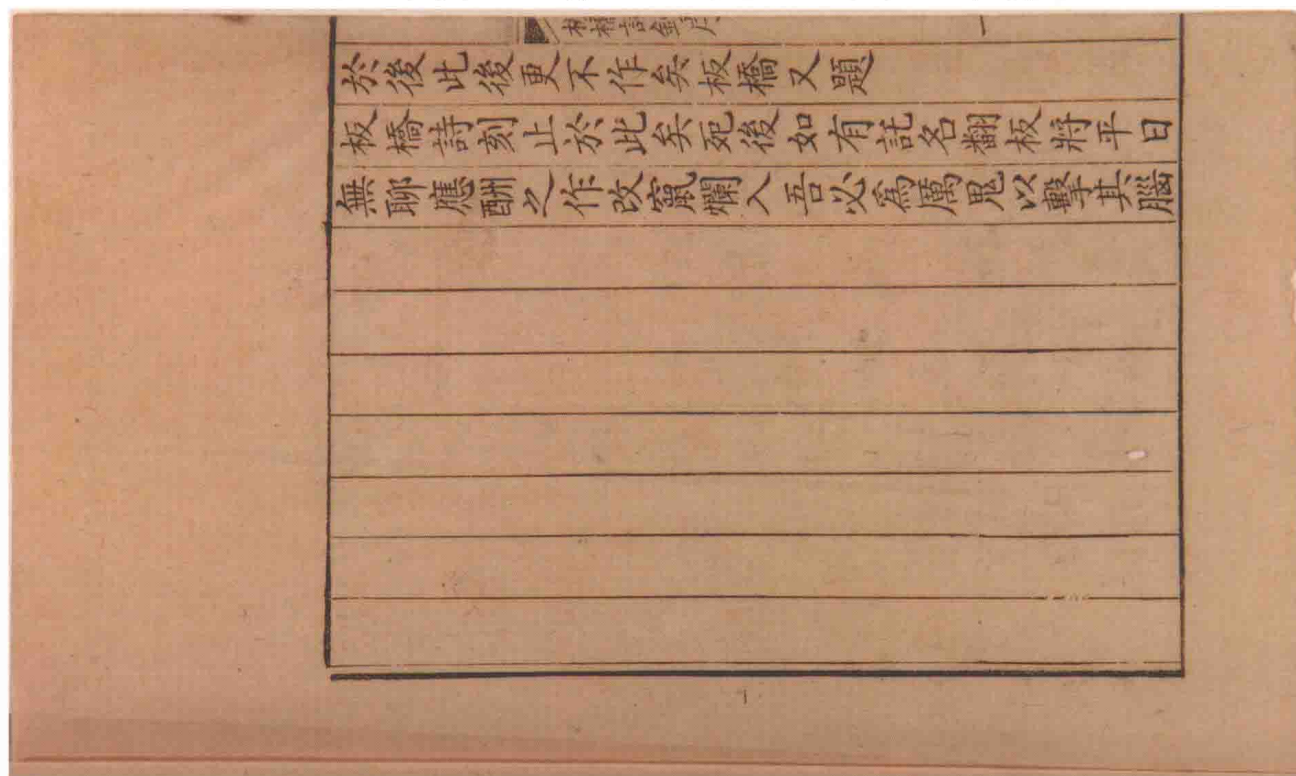 板橋詩鈔
於後此後更不作矣板橋又題
板橋詩刻止於此矣死後如有託名翻板將平日
無聊應酬之作改竄爛入吾必爲厲鬼以擊其腦